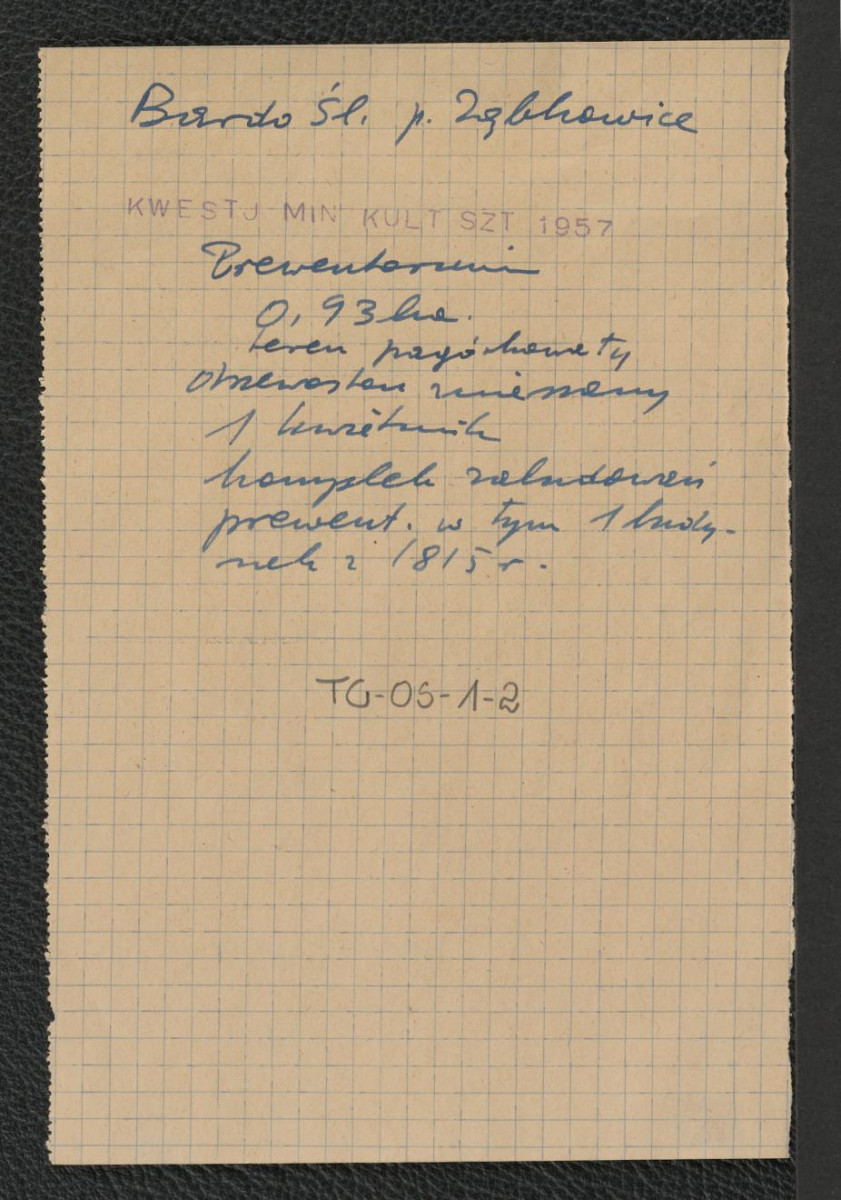 Bardo Śl. p. Ząbkowice
KWESTJ MIN KULT SZT 1957
Prewentorium
0,93 ha.
teren pagórkowaty
drzewostan zmieszany
1 kwietnik
komplek zabudowań
prewent. w tym 1 budy-
nek z 1815 r.
TG-OS-1-2